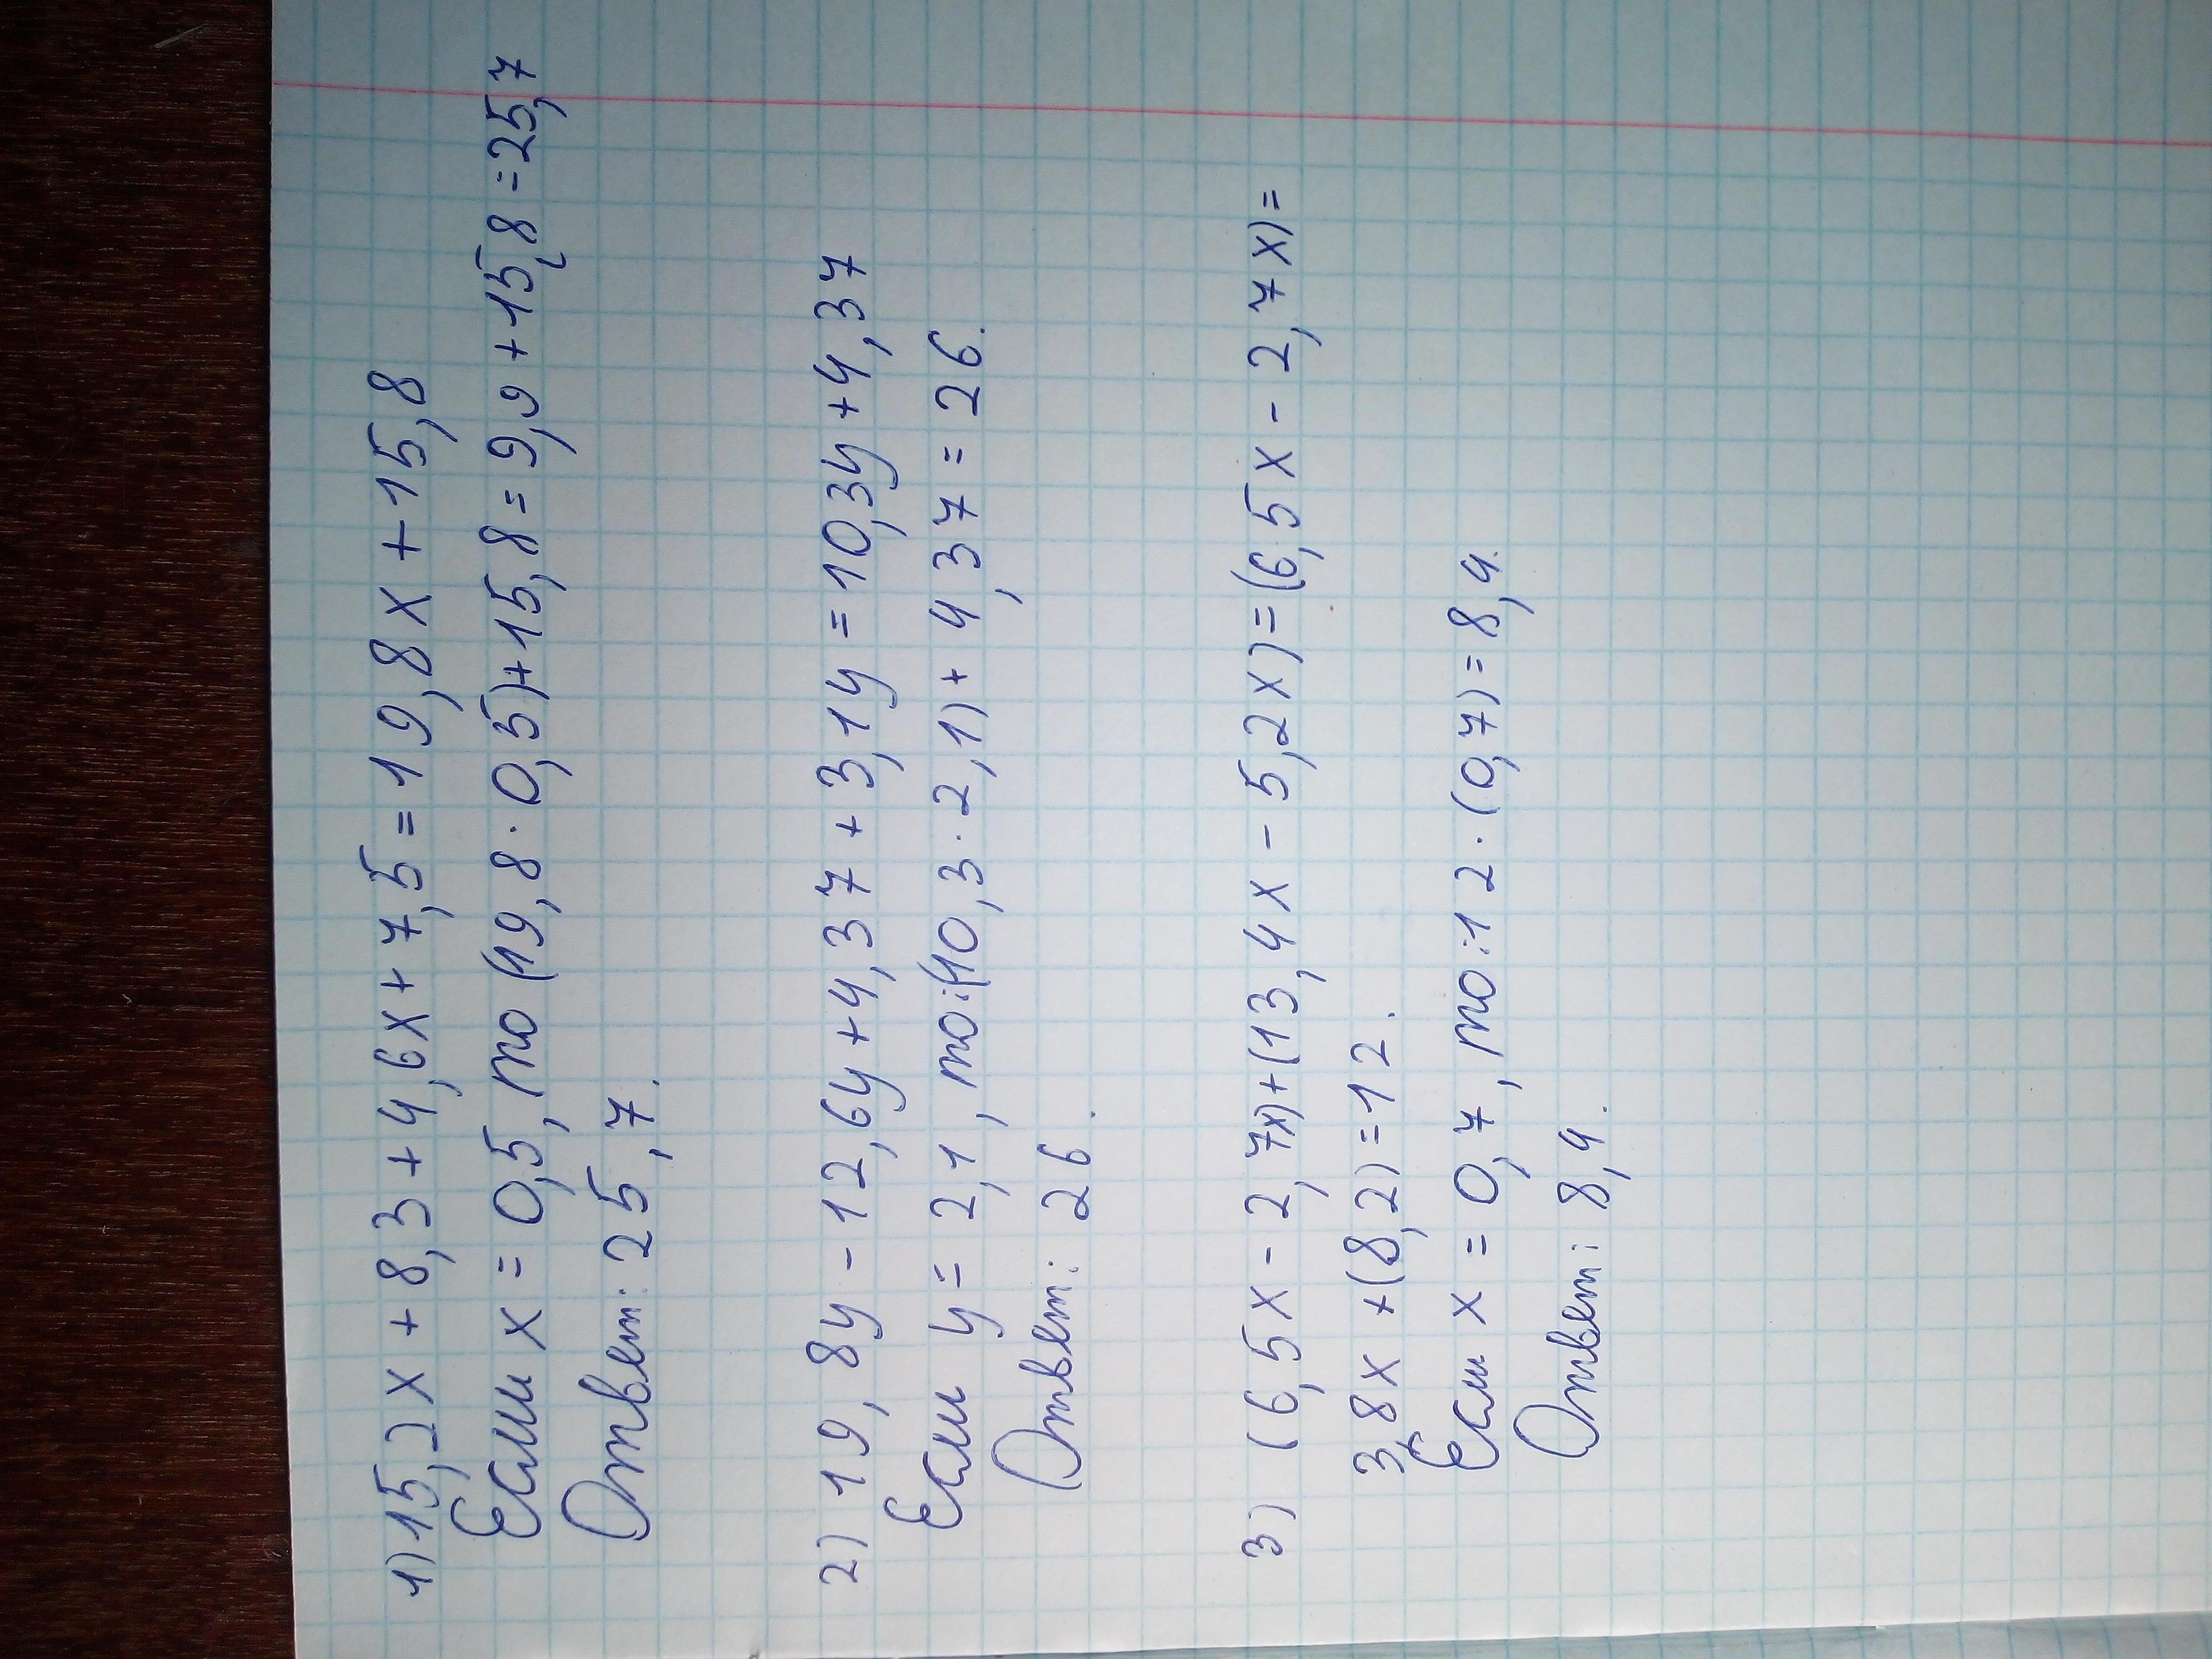 1) 15,2x + 8,3 + 4,6x + 7,5 = 19,8x + 15,8
Если x = 0,5, то (19,8 · 0,5) + 15,8 = 9,9 + 15,8 = 25,7
Ответ: 25,7.
2) 19,8y - 12,6y + 4,37 + 3,1y = 10,3y + 4,37
Если y = 2,1, то: (10,3 · 2,1) + 4,37 = 26.
Ответ: 26.
3) (6,5x - 2,7x) + (13,4x - 5,2x) = (6,5x - 2,7x) =
3,8x + (8,2) = 12.
Если x = 0,7, то: 12 · (0,7) = 8,4.
Ответ: 8,4.